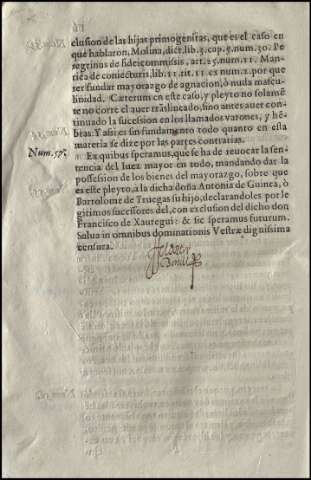 clusion de las hijas primogenitas, que es el caso en
que hablaron, Molina, dict. lib. 3. cap. 5. num. 30. Pe
regrinus de fideicommissis, art. 25. num. 11. Man
tica de coniecturis, lib. 11. tit. 11. ex num. 2. por que
ser fundar mayorazgo de agnacion, ò nuda mascu
linidad. Cæterum en este caso, y pleyto no solamẽ
te no corre el auer trãslineado, sino antes auer con
tinuado la sucesion en los llamados varones, y hẽ
bras: Y assi es sin fundamento todo quanto en esta
materia se dize por las partes contrarias.
Num. 57.
Ex quibus speramus, que se ha de reuocar la sen
tencia del Iuez mayor en todo, mandando dar la
possession de los bienes del mayorazgo, sobre que
es este pleyto, a la dicha doña Antonia de Guinea, ò
Bartolome de Truegas su hijo, declarandoles por le
gitimos successores del, con exclusion del dicho don
Francisco de Xauregui: & sic speramus futurum.
Salua in omnibus dominationis Vestræ dignissima
censura.